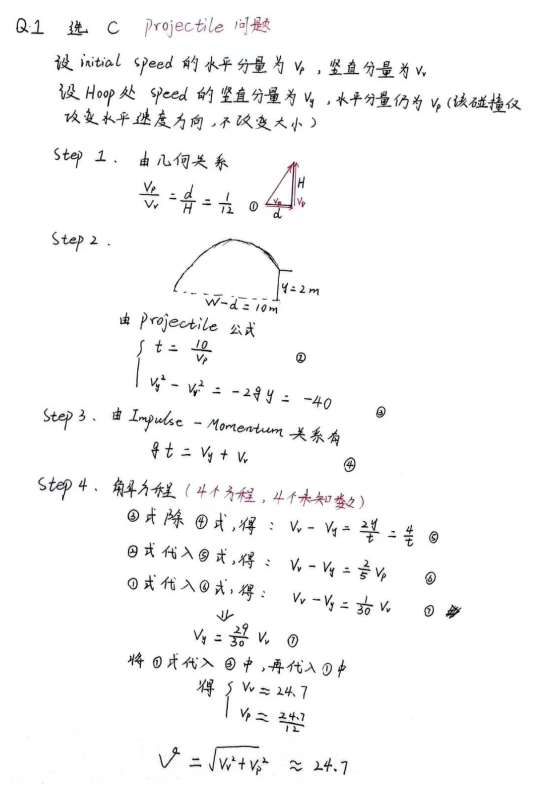 Q.1 选 C Projectile 问题
设 initial speed 的水平分量为 Vp，竖直分量为 Vv
设 Hoop 处 speed 的竖直分量为 Vy，水平分量仍为 Vp（该碰撞仅
改变水平速度方向，不改变大小）
Step 1. 由几何关系
Vp/Vv = d/H = 1/12 ①
H
Vp
Vv
d
Step 2.
y=2m
W-d=10m
由 Projectile 公式
{ t = 10/Vp ②
Vy² - Vv² = -2gy = -40 ③
Step 3. 由 Impulse-Momentum 关系有
gt = Vy + Vv ④
Step 4. 解方程（4个方程，4个未知数）
③式除④式，得： Vv - Vy = 2y/t = 4/t ⑤
②式代入⑤式，得： Vv - Vy = 2/5 Vp ⑥
①式代入⑥式，得： Vv - Vy = 1/30 Vv ⑦
⇓
Vy = 29/30 Vv ⑦
将⑦式代入③中，再代入①中
得 { Vv ≈ 24.7
Vp ≈ 24.7/12
V = √(Vv²+Vp²) ≈ 24.7